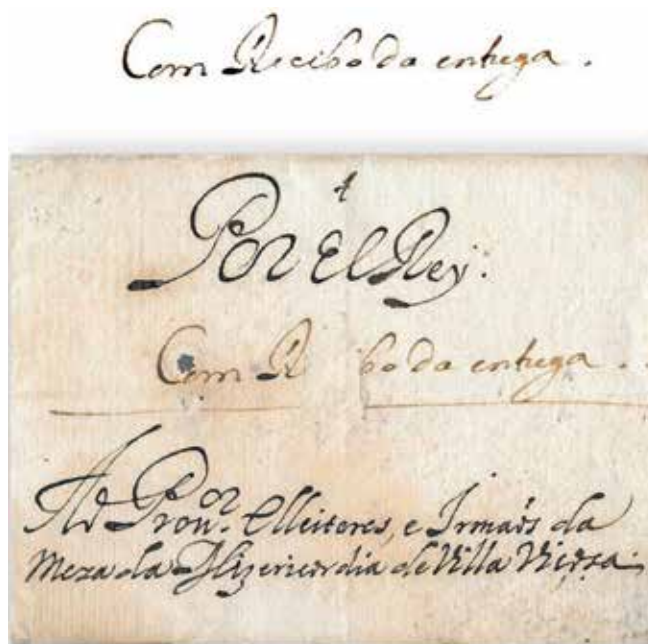 Com Recibo da entrega.
Por El Rey.
Com R bo da entrega.
Ao Prou.or Elleitores, e Irmaõs da
Meza da Mizericordia de Villa Viçoza